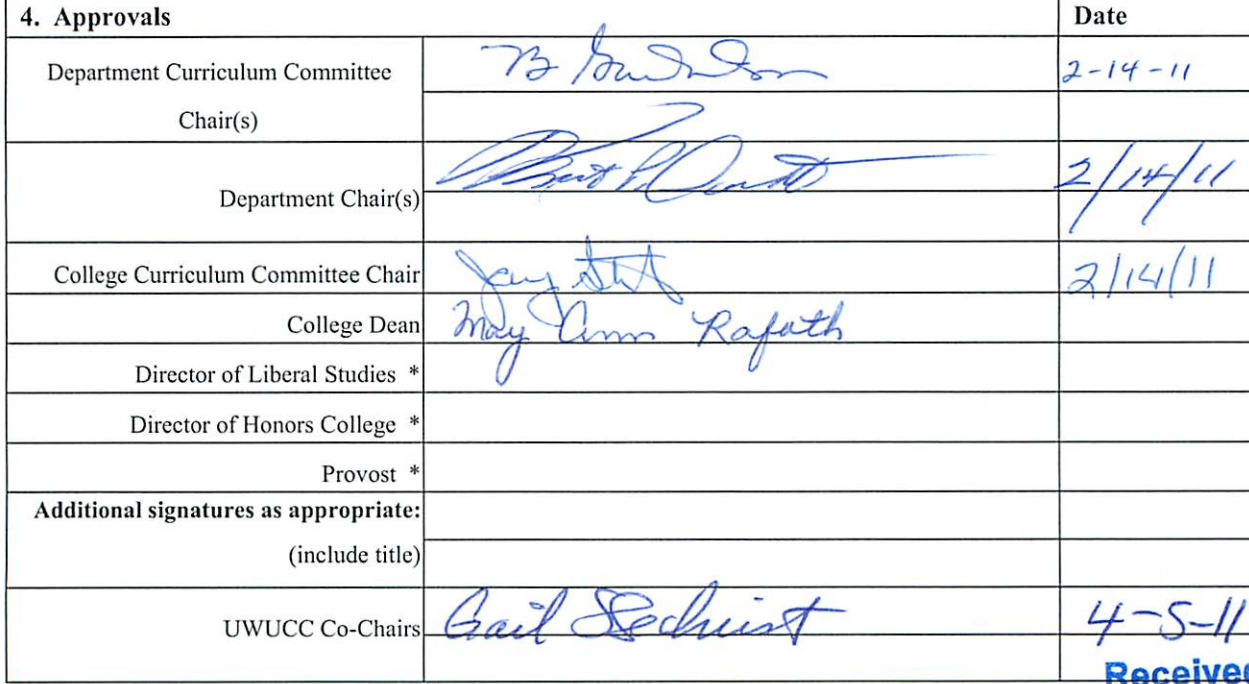 4. Approvals Date
Department Curriculum Committee Chair(s) 2-14-11
Department Chair(s) 2/14/11
College Curriculum Committee Chair 2/14/11
College Dean Mary Ann Rafoth
Director of Liberal Studies *
Director of Honors College *
Provost *
Additional signatures as appropriate:
(include title)
UWUCC Co-Chairs Gail Sechrist 4-5-11
Received